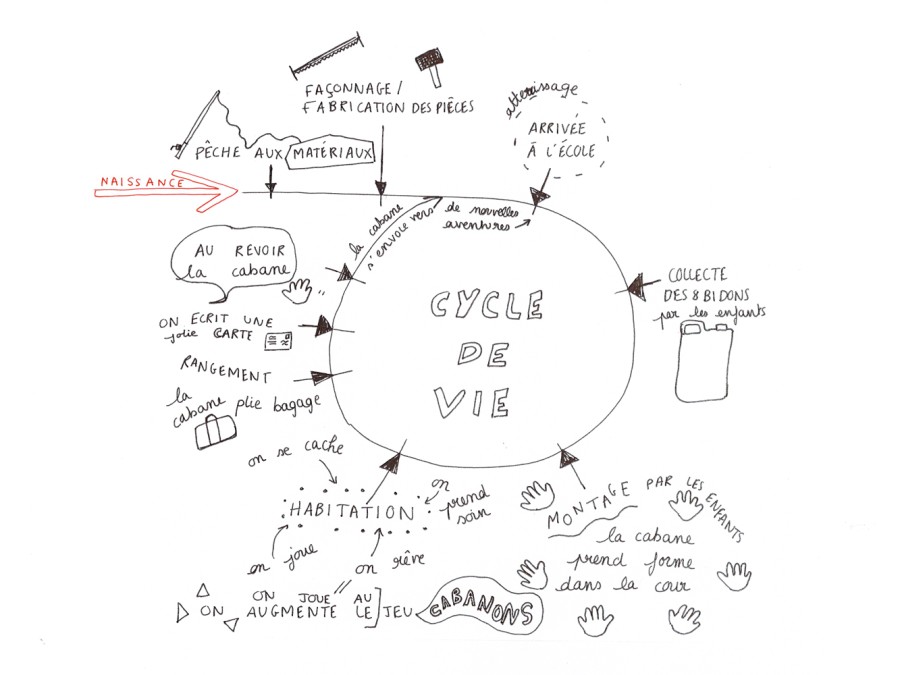 FAÇONNAGE /
FABRICATION DES PIÈCES
PÊCHE AUX MATÉRIAUX
NAISSANCE
atterrissage
ARRIVÉE
À L'ÉCOLE
la cabane
s'envole vers
de nouvelles
aventures
COLLECTE
DES 8 BIDONS
par les enfants
CYCLE
DE
VIE
AU REVOIR
la cabane
ON ECRIT UNE
jolie CARTE
RANGEMENT
la
cabane plie bagage
on se cache
on
prend
soin
HABITATION
on joue
on rêve
MONTAGE PAR LES ENFANTS
la cabane
prend forme
dans la cour
ON JOUE AU
ON AUGMENTE LE JEU CABANONS